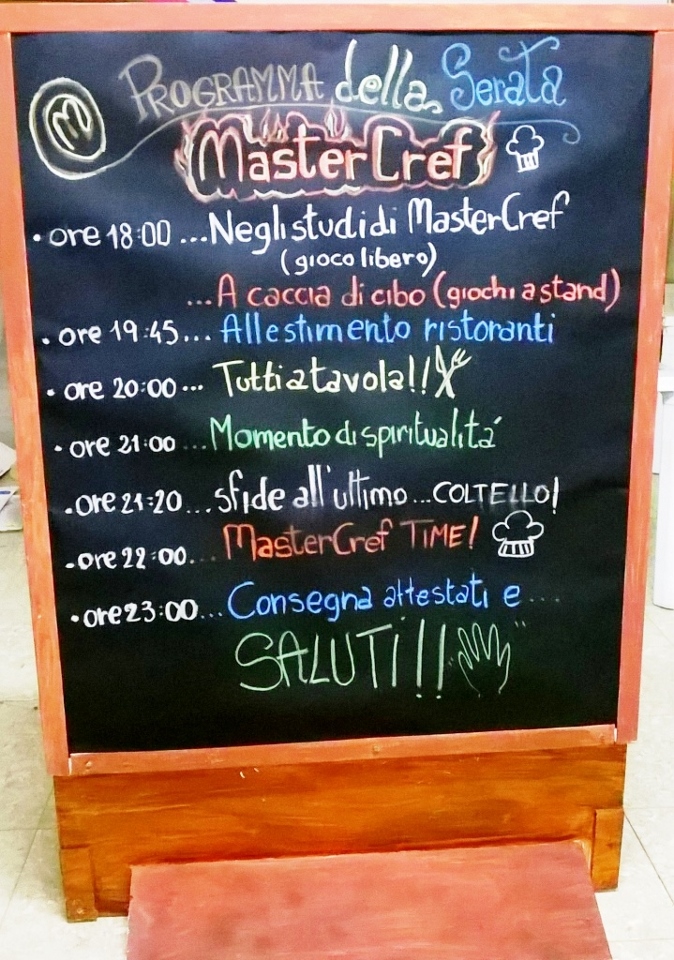 Programma della Serata
M
MasterCref
• ore 18:00 ... Negli studi di MasterCref
(gioco libero)
... A caccia di cibo (giochi a stand)
• ore 19:45... Allestimento ristoranti
• ore 20:00... Tutti a tavola!!
• ore 21:00 ... Momento di spiritualità
• ore 21:20 ... sfide all'ultimo ... COLTELLO!
• ore 22:00... MasterCref TIME!
• ore 23:00... Consegna attestati e ...
SALUTI!!